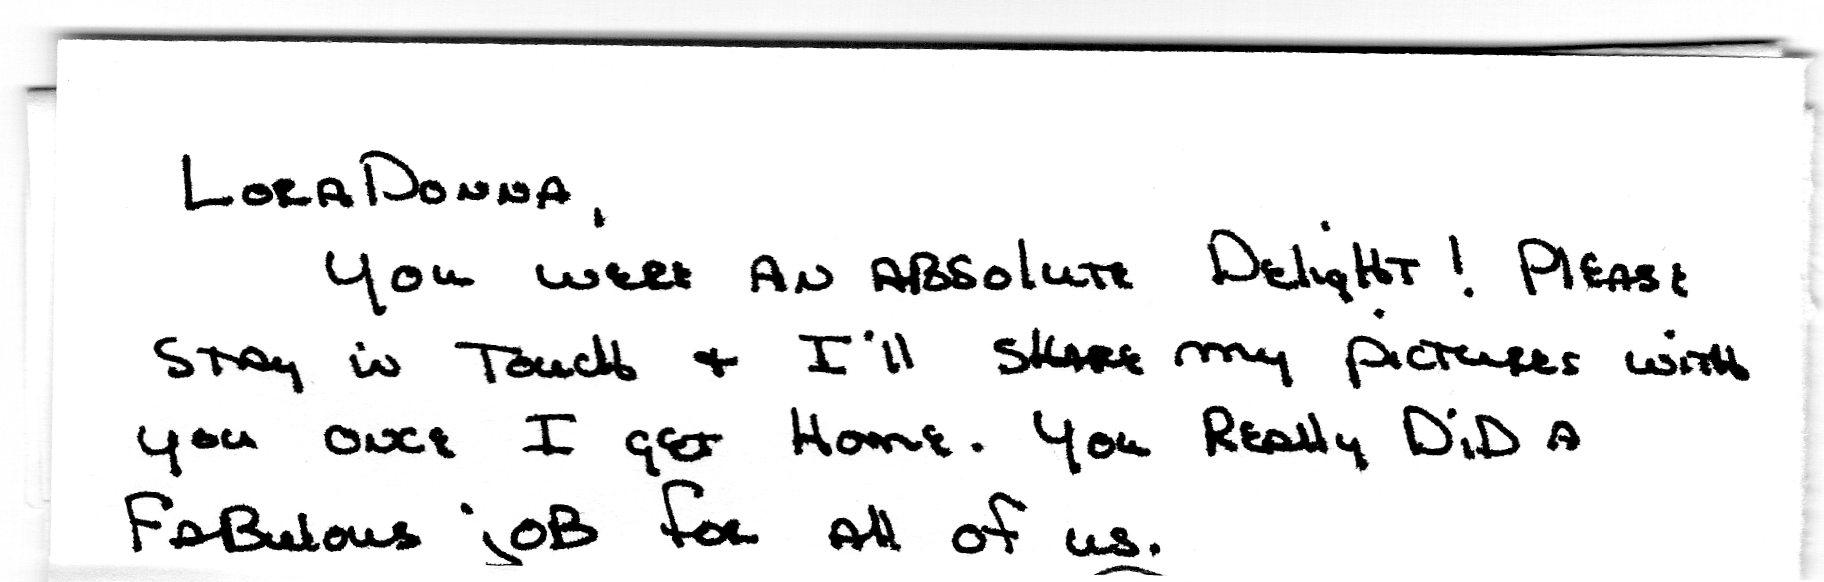 LoraDonna,
You were an absolute Delight! Please
stay in Touch + I'll share my pictures with
you once I get Home. You Really DiD a
FaBulous joB for all of us.